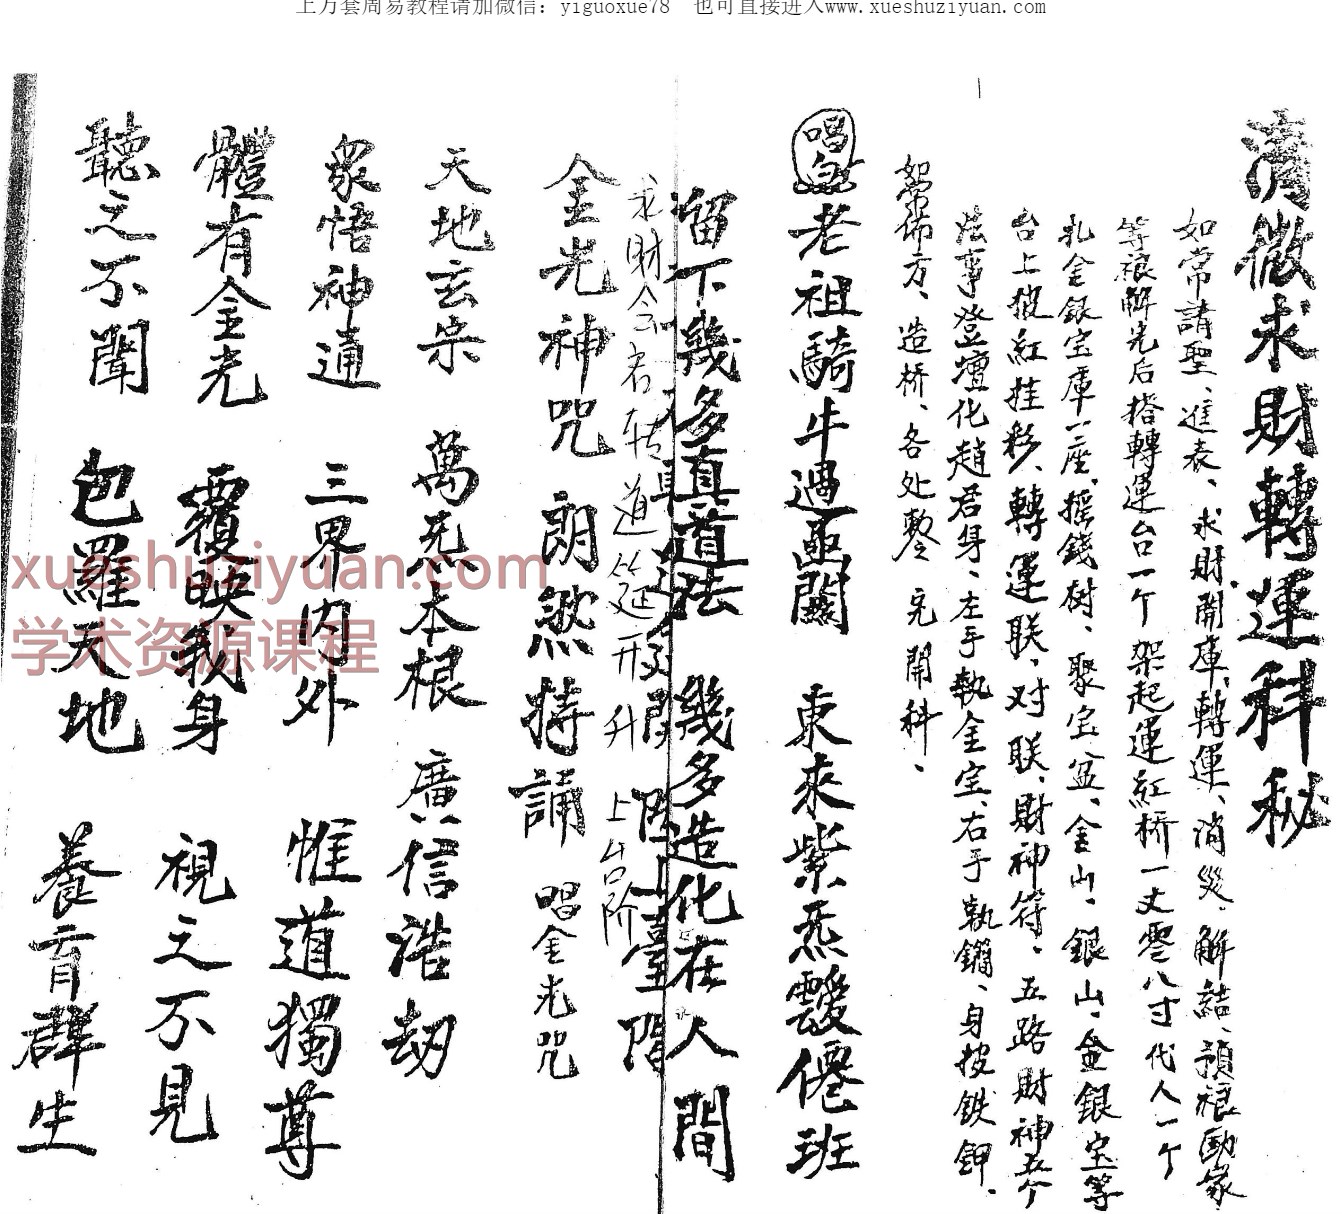 上万套周易教程请加微信：yiguoxue78　也可直接进入www.xueshuziyuan.com
清微求財轉運科秘
如常請聖、進表、求財、開庫、轉運、消災、解結、
等禳解先后搭轉運台一个架起運紅桥一丈零八寸代人一个
札金銀宝庫一座、摇錢树、聚宝盆、金山、銀山、金銀宝等
台上披紅挂彩、轉運联、对联、財神符、五路財神
法事登壇化趙君身、左手執金宝、右手執鐧、身披鉄鉀、
如常佈方、造桥、各处 完開科、
唱
老祖騎牛過 關　東來紫炁靉僊班
留下幾多真道法　幾多造化在人間
求財会 君转 道 延 升 上台阶
金光神咒　朗然持誦　唱金光咒
天地玄宗　萬炁本根　廣信浩劫
眾悟神通　三界内外　惟道獨尊
體有金光　覆映我身　視之不見
聽之不聞　包羅天地　養育群生
xueshuziyuan.com
学术资源课程